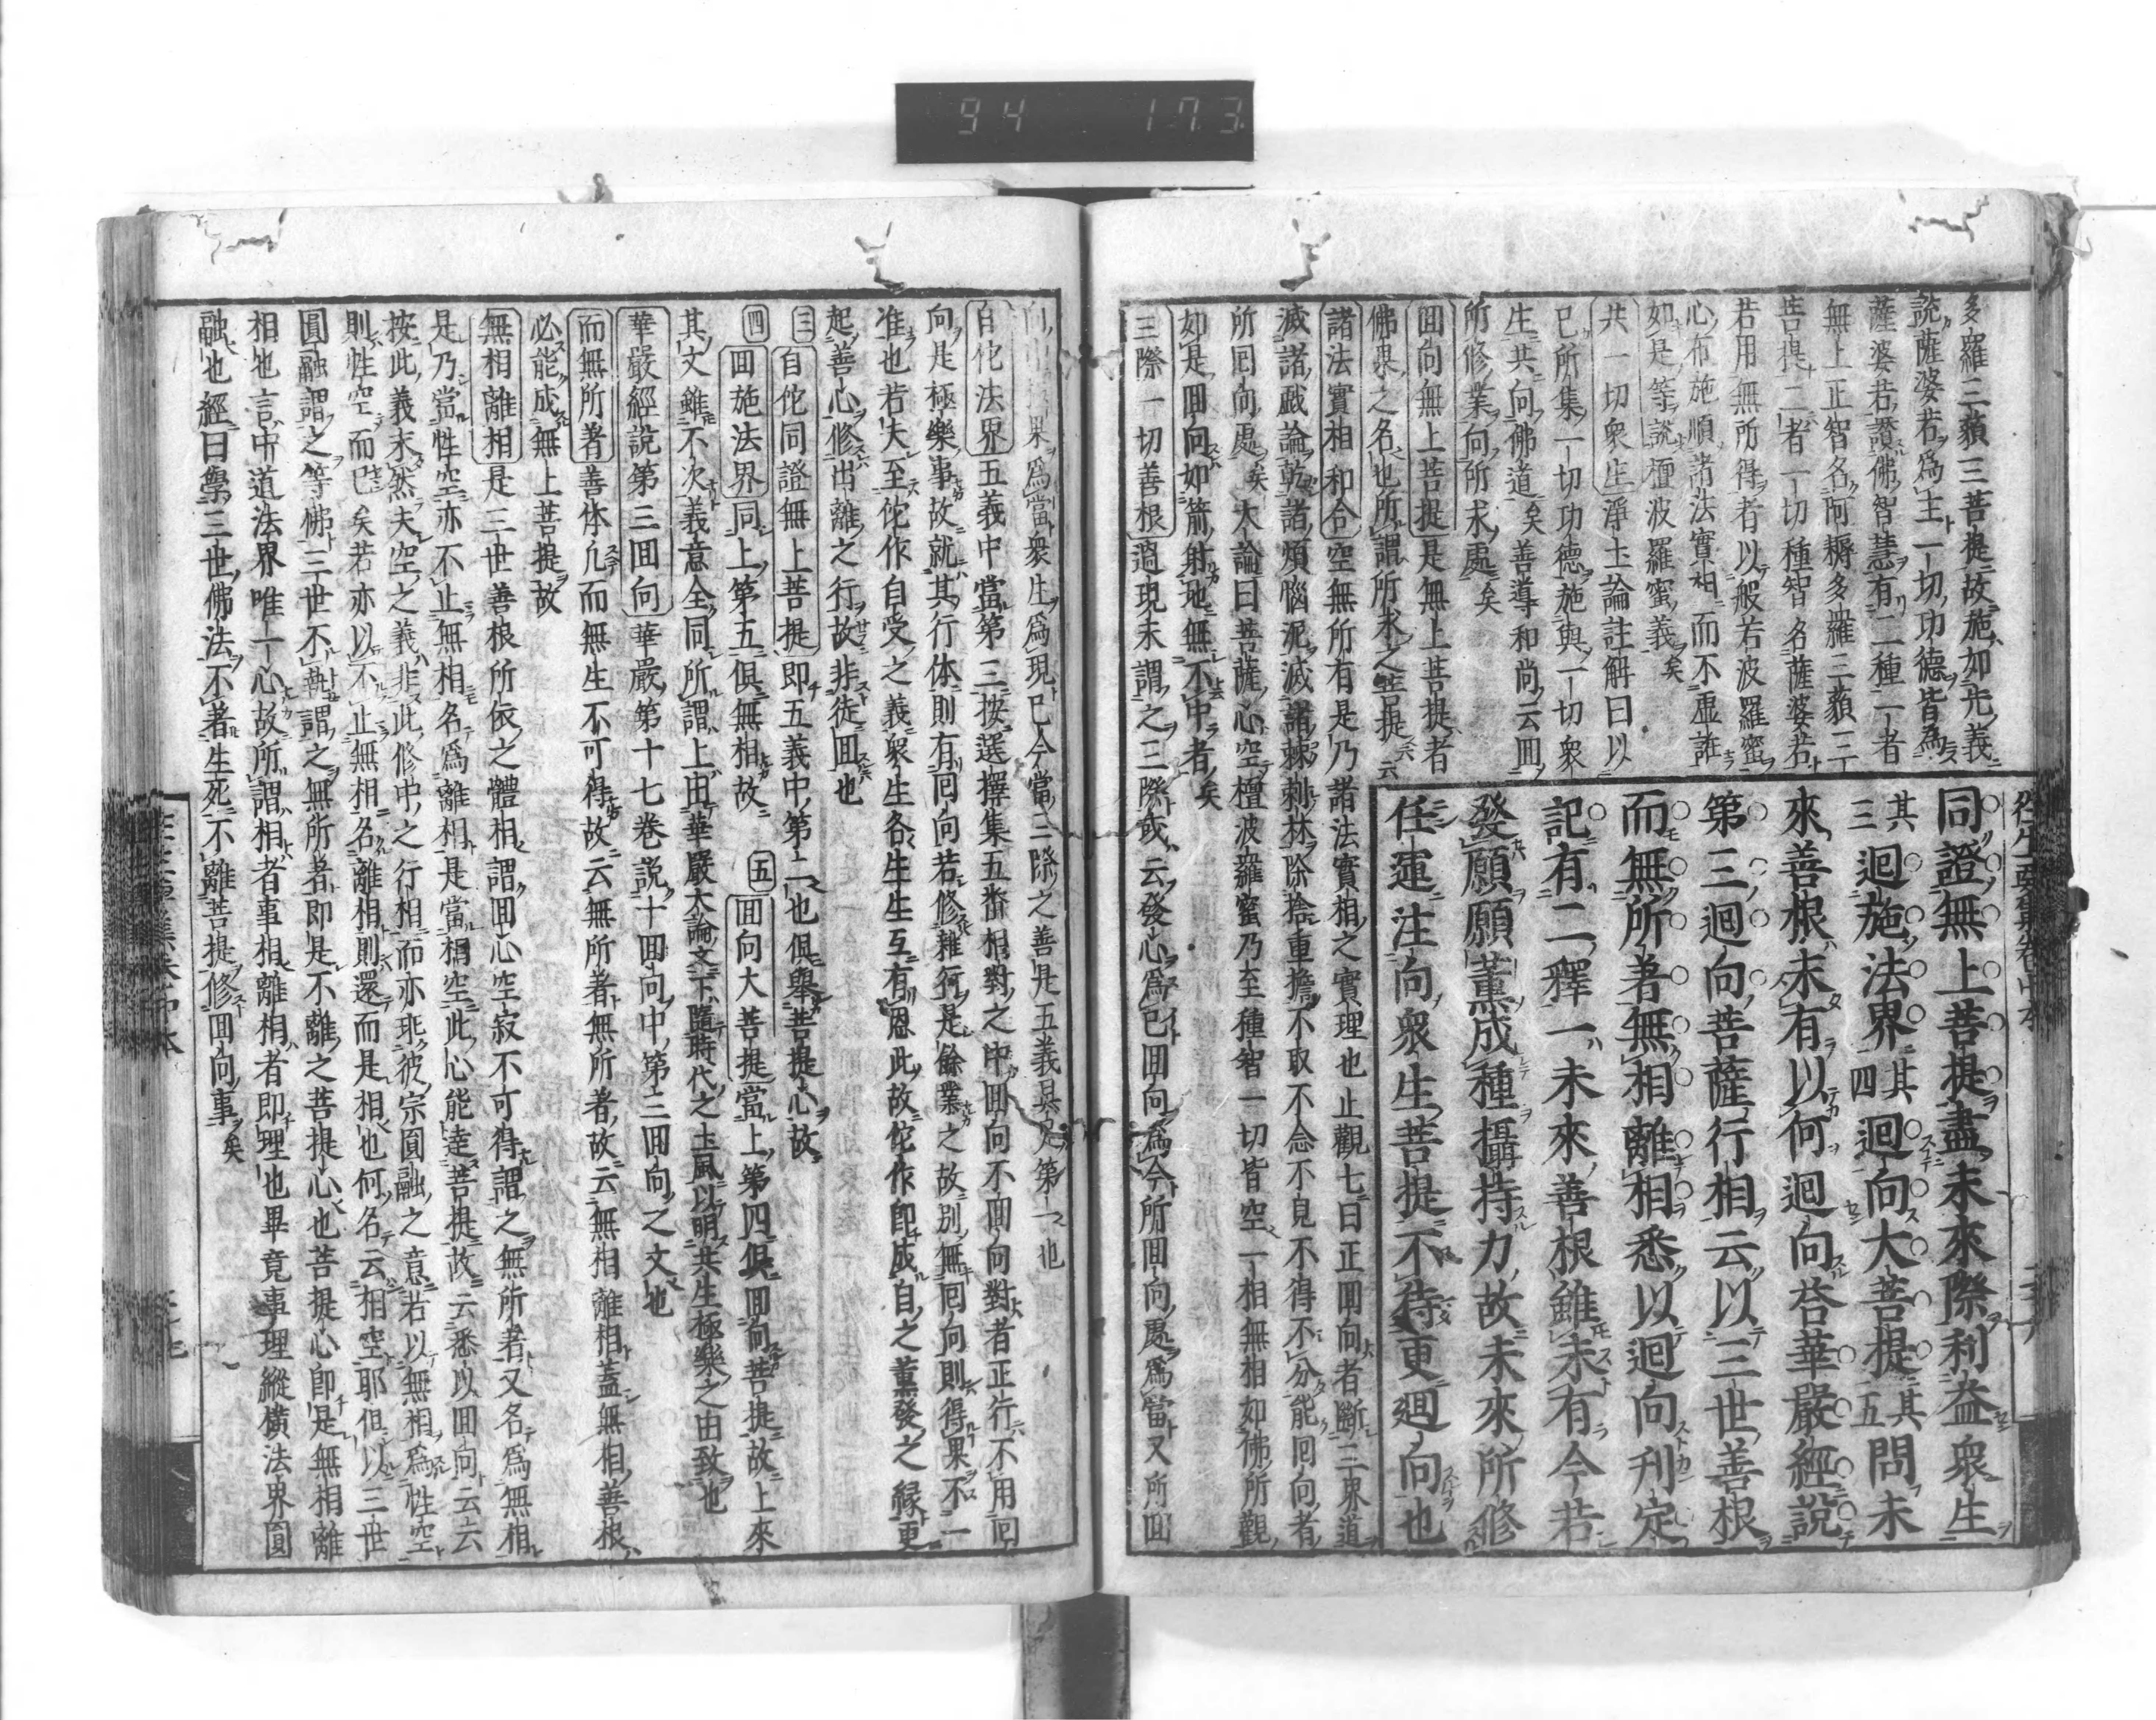 94 173
多羅三藐三菩提故施如先義
說薩婆若爲主一切功德皆爲
薩婆若讚佛智慧有二種一者
無上正智名阿耨多羅三藐三
菩提二者一切種智名薩婆若
若用無所得者以般若波羅蜜
心布施順諸法實相而不虛誑
如是等說檀波羅蜜義矣
共一切衆生淨土論註解曰以
已所集一切功德施與一切衆
生共向佛道矣善導和尚云回
所修業向所求處矣
回向無上菩提是無上菩提者
佛果之名也所謂所求之菩提
諸法實相和合空無所有是乃諸法實相之實理也止觀七曰正回向者斷三界道
滅諸戲論乾諸煩惱泥滅諸棘刺林除捨重擔不取不念不見不得不分能回向者
所回向處矣大論曰菩薩心空檀波羅蜜乃至種智一切皆空一相無相如佛所觀
如是回向如箭射地無不中者矣
三際一切善根過現未謂之三際或云發心爲已回向爲今所回向處爲當又所回
往生要集卷中本
同證無上菩提盡未來際利益衆生
其三迴施法界其四迴向大菩提其五問未
來善根未有以何迴向答華嚴經說
第三迴向菩薩行相云以三世善根
而無所著無相離相悉以迴向刋定
記有二釋一未來善根雖未有今若
發願願薰成種攝持力故未來所修
任運注向衆生菩提不待更迴向也
果爲當衆生爲現已今當三際之善是五義具足第一也
自佗法界五義中當第三按選擇集五番相對之中回向不回向對者正行不用回
向是極樂事故就其行体則有回向若修雜行是餘業之故別無回向則得果不一
准也若夫至佗作自受之義衆生各生生互有恩此故佗作即成自之薰發之緣更
起善心修出離之行故非徒回也
三自佗同證無上菩提即五義中第二也俱舉菩提心故
四回施法界同上第五俱無相故 五回向大菩提當上第四俱回向菩提故上來
其文雖不次義意全同所謂上由華嚴大論文下隨時代之土風以明共生極樂之由致也
華嚴經說第三回向華嚴第十七卷說十回向中第三回向之文也
而無所著善体凡而無生不可得故云無所著無所著故云無相離相蓋無相善根
必能成無上菩提故
無相離相是三世善根所依之體相謂回心空寂不可得謂之無所著又名爲無相
是乃當性空亦不止無相名爲離相是當相空此心能達菩提故云悉以回向云云
按此義未然夫空之義非此修中之行相而亦非彼宗圓融之意若以無相爲性空
則性空而已矣若亦以不止無相名離相則還而是相也何名云相空耶但以三世
圓融謂之等佛三世不執謂之無所著即是不離之菩提心也菩提心即是無相離
相也言中道法界唯一心故所謂相者事相離相者即理也畢竟事理縱橫法界圓
融也經曰學三世佛法不著生死不離菩提修回向事矣